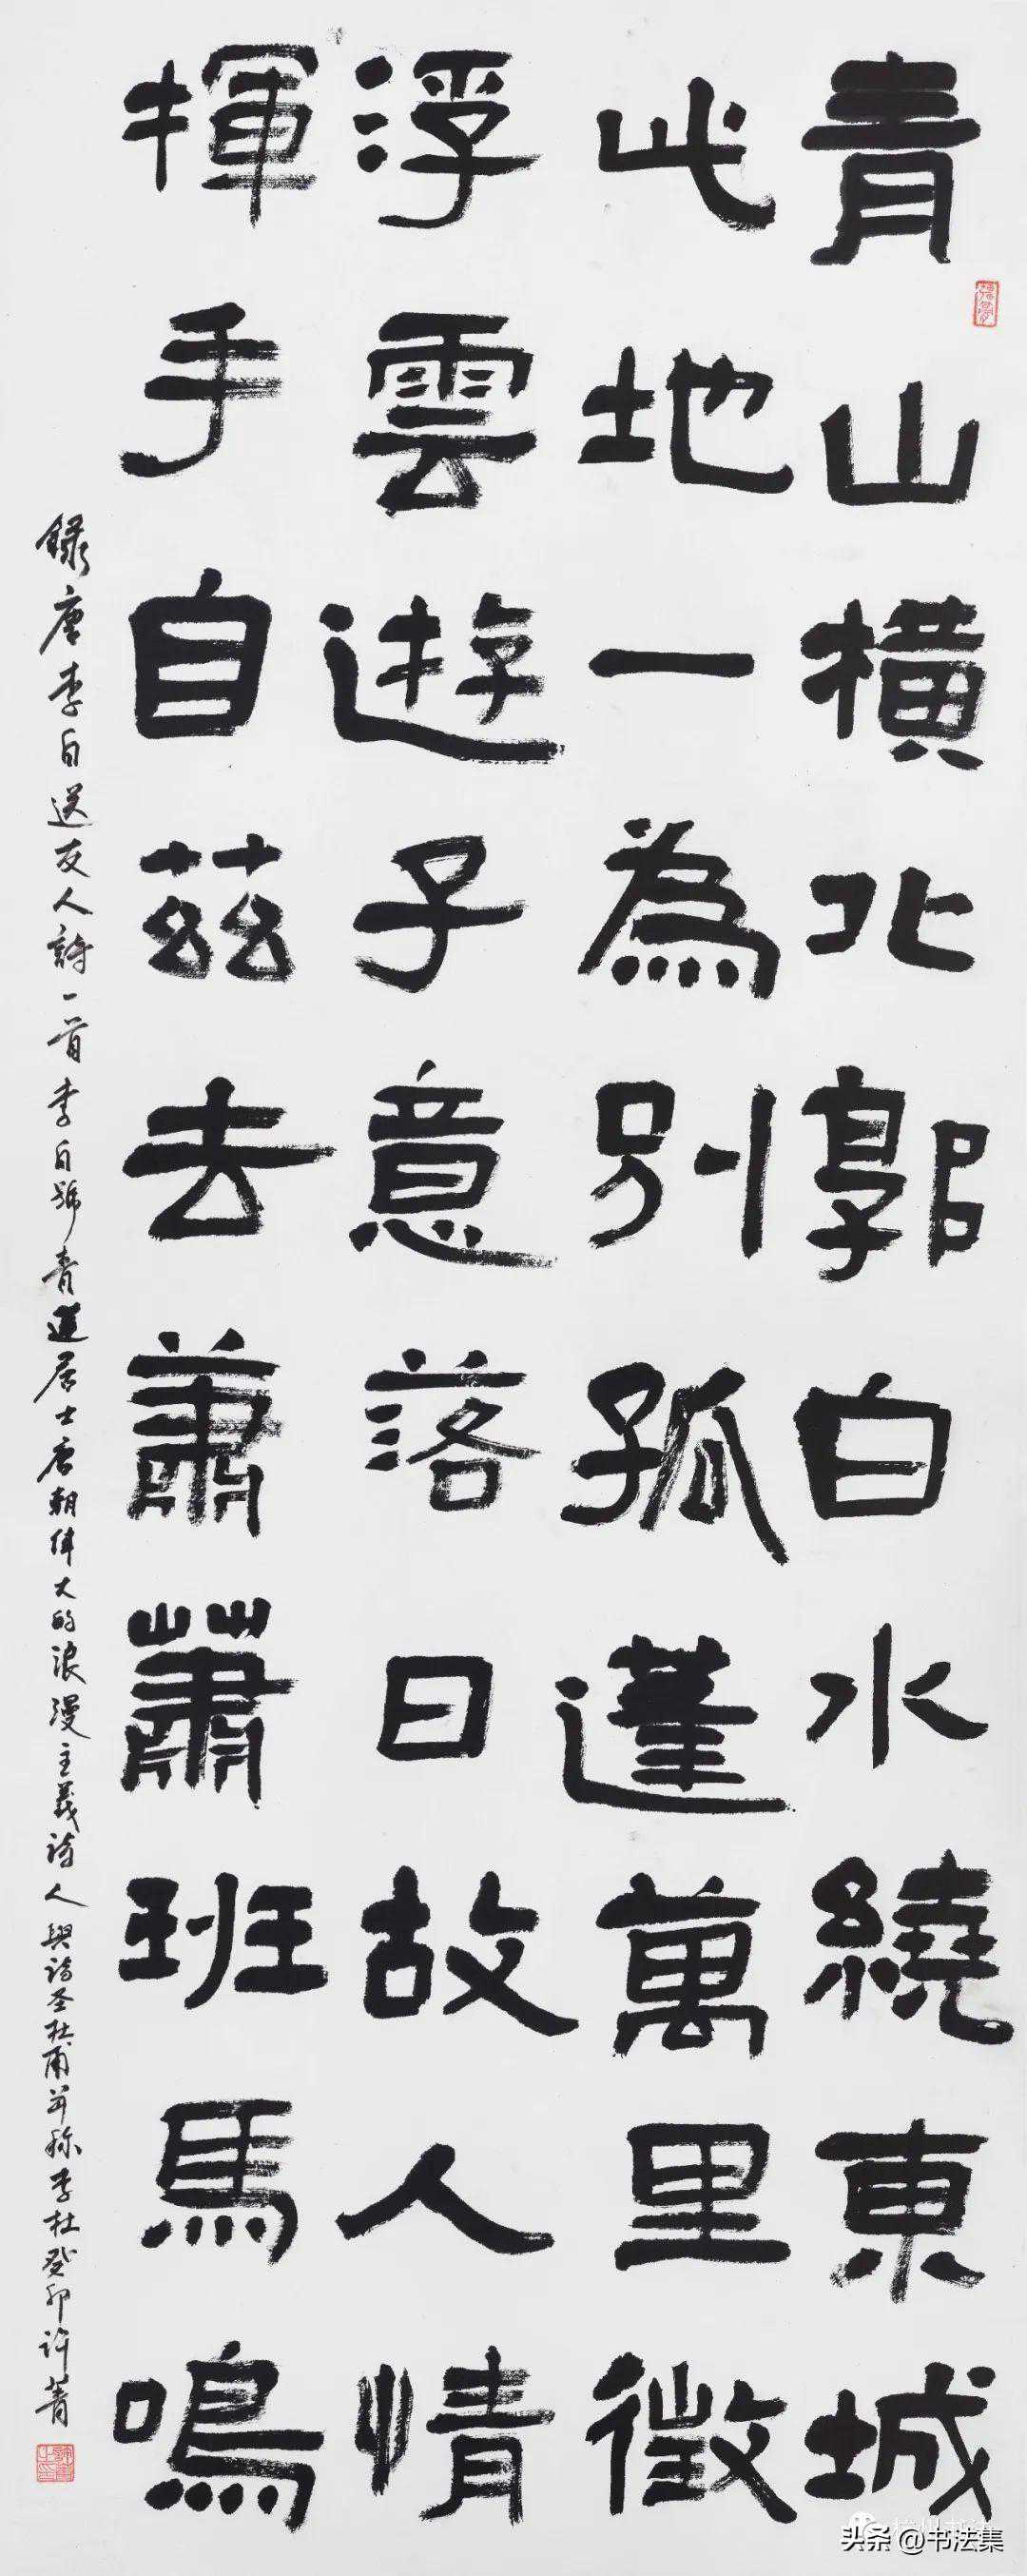 青山橫北郭白水繞東城
此地一為別孤蓬萬里徵
浮雲遊子意落日故人情
揮手自茲去蕭蕭班馬鳴
錄唐李白送友人詩一首李白號青蓮居士唐朝偉大的浪漫主義诗人與诗圣杜甫并称李杜癸卯许菁
头条 @书法集